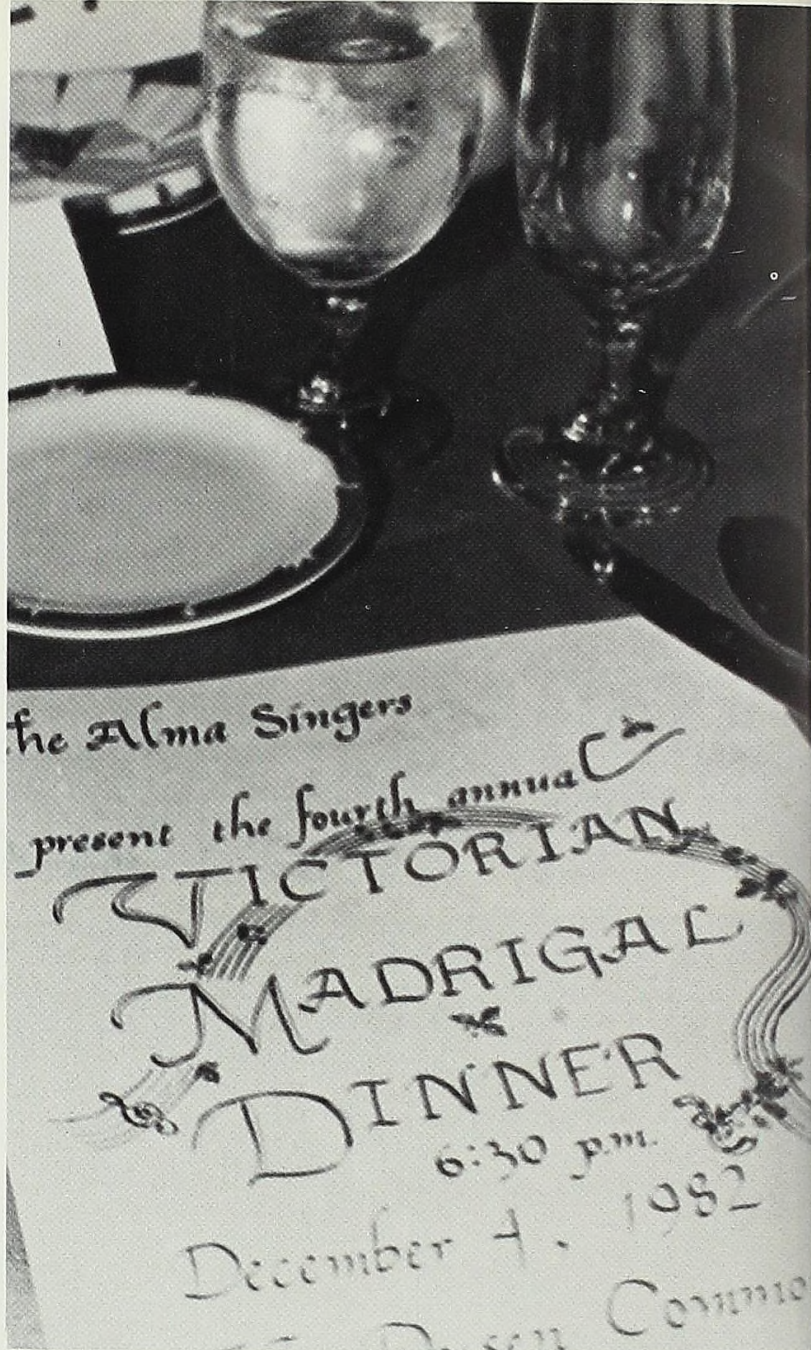 the Alma Singers
present the fourth annual
VICTORIAN
MADRIGAL
DINNER
6:30 p.m.
December 4, 1982
Commo